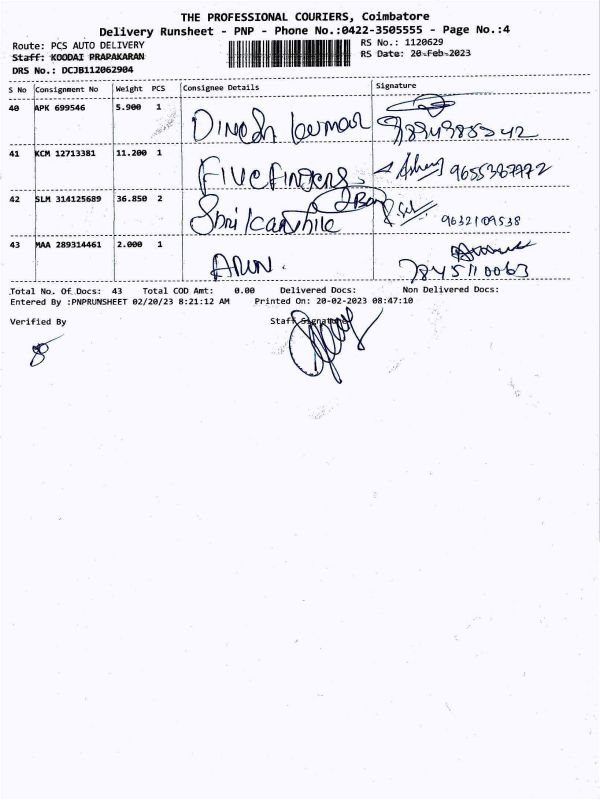 THE PROFESSIONAL COURIERS, Coimbatore
Delivery Runsheet - PNP - Phone No.:0422-3505555 - Page No.:4
Route: PCS AUTO DELIVERY
RS No.: 1120629
Staff: KOODAI PRAPAKARAN
RS Date: 20-Feb-2023
DRS No.: DCJB112062904
S No Consignment No Weight PCS Consignee Details Signature
40 APK 699546 5.900 1 Dinesh kumar
41 KCM 12713381 11.200 1 Five fingers 9655367972
42 SLM 314125689 36.850 2 9632109538
43 MAA 289314461 2.000 1 ARUN. 7845110063
Total No. Of Docs: 43 Total COD Amt: 0.00 Delivered Docs: Non Delivered Docs:
Entered By :PNPRUNSHEET 02/20/23 8:21:12 AM Printed On: 20-02-2023 08:47:10
Verified By Staff Signature